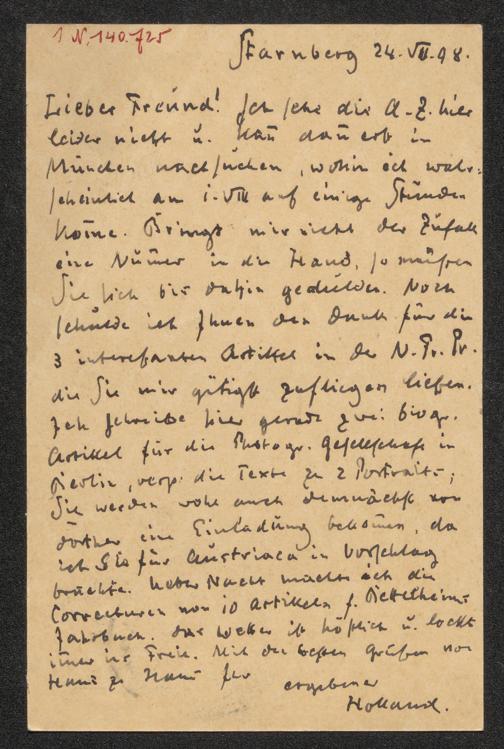 1 N. 140.725
Starnberg 24. VII. 98.
Lieber Freund! Ich sehe die A. Z. hier
leider nicht u. kan̅ dan̅ erst in
München nachsuchen, wohin ich wahr-
scheinlich am 1. VIII auf einige Stunden
kom̅e. Bringt mir nicht der Zufall
eine Num̅er in die Hand, so müssen
Sie sich bis dahin gedulden. Noch
schulde ich Ihnen den Dank für die
3 interessanten Artikel in der N. Fr. Pr.
die Sie mir gütigst zufliegen ließen.
Ich schreibe hier gerade zwei biogr.
Artikel für die Photogr. Gesellschaft in
Berlin, resp. die Texte zu 2 Portraits;
Sie werden wohl auch demnächst von
dorther eine Einladung bekom̅en, da
ich Sie für Austriaca in Vorschlag
brachte. Ueber Nacht machte ich die
Correcturen von 10 Artikeln f. Bettelheims
Jahrbuch. Das Wetter ist köstlich u. lockt
im̅er ins Freie. Mit den besten Grüßen von
Haus zu Haus Ihr
ergebener
Holland.